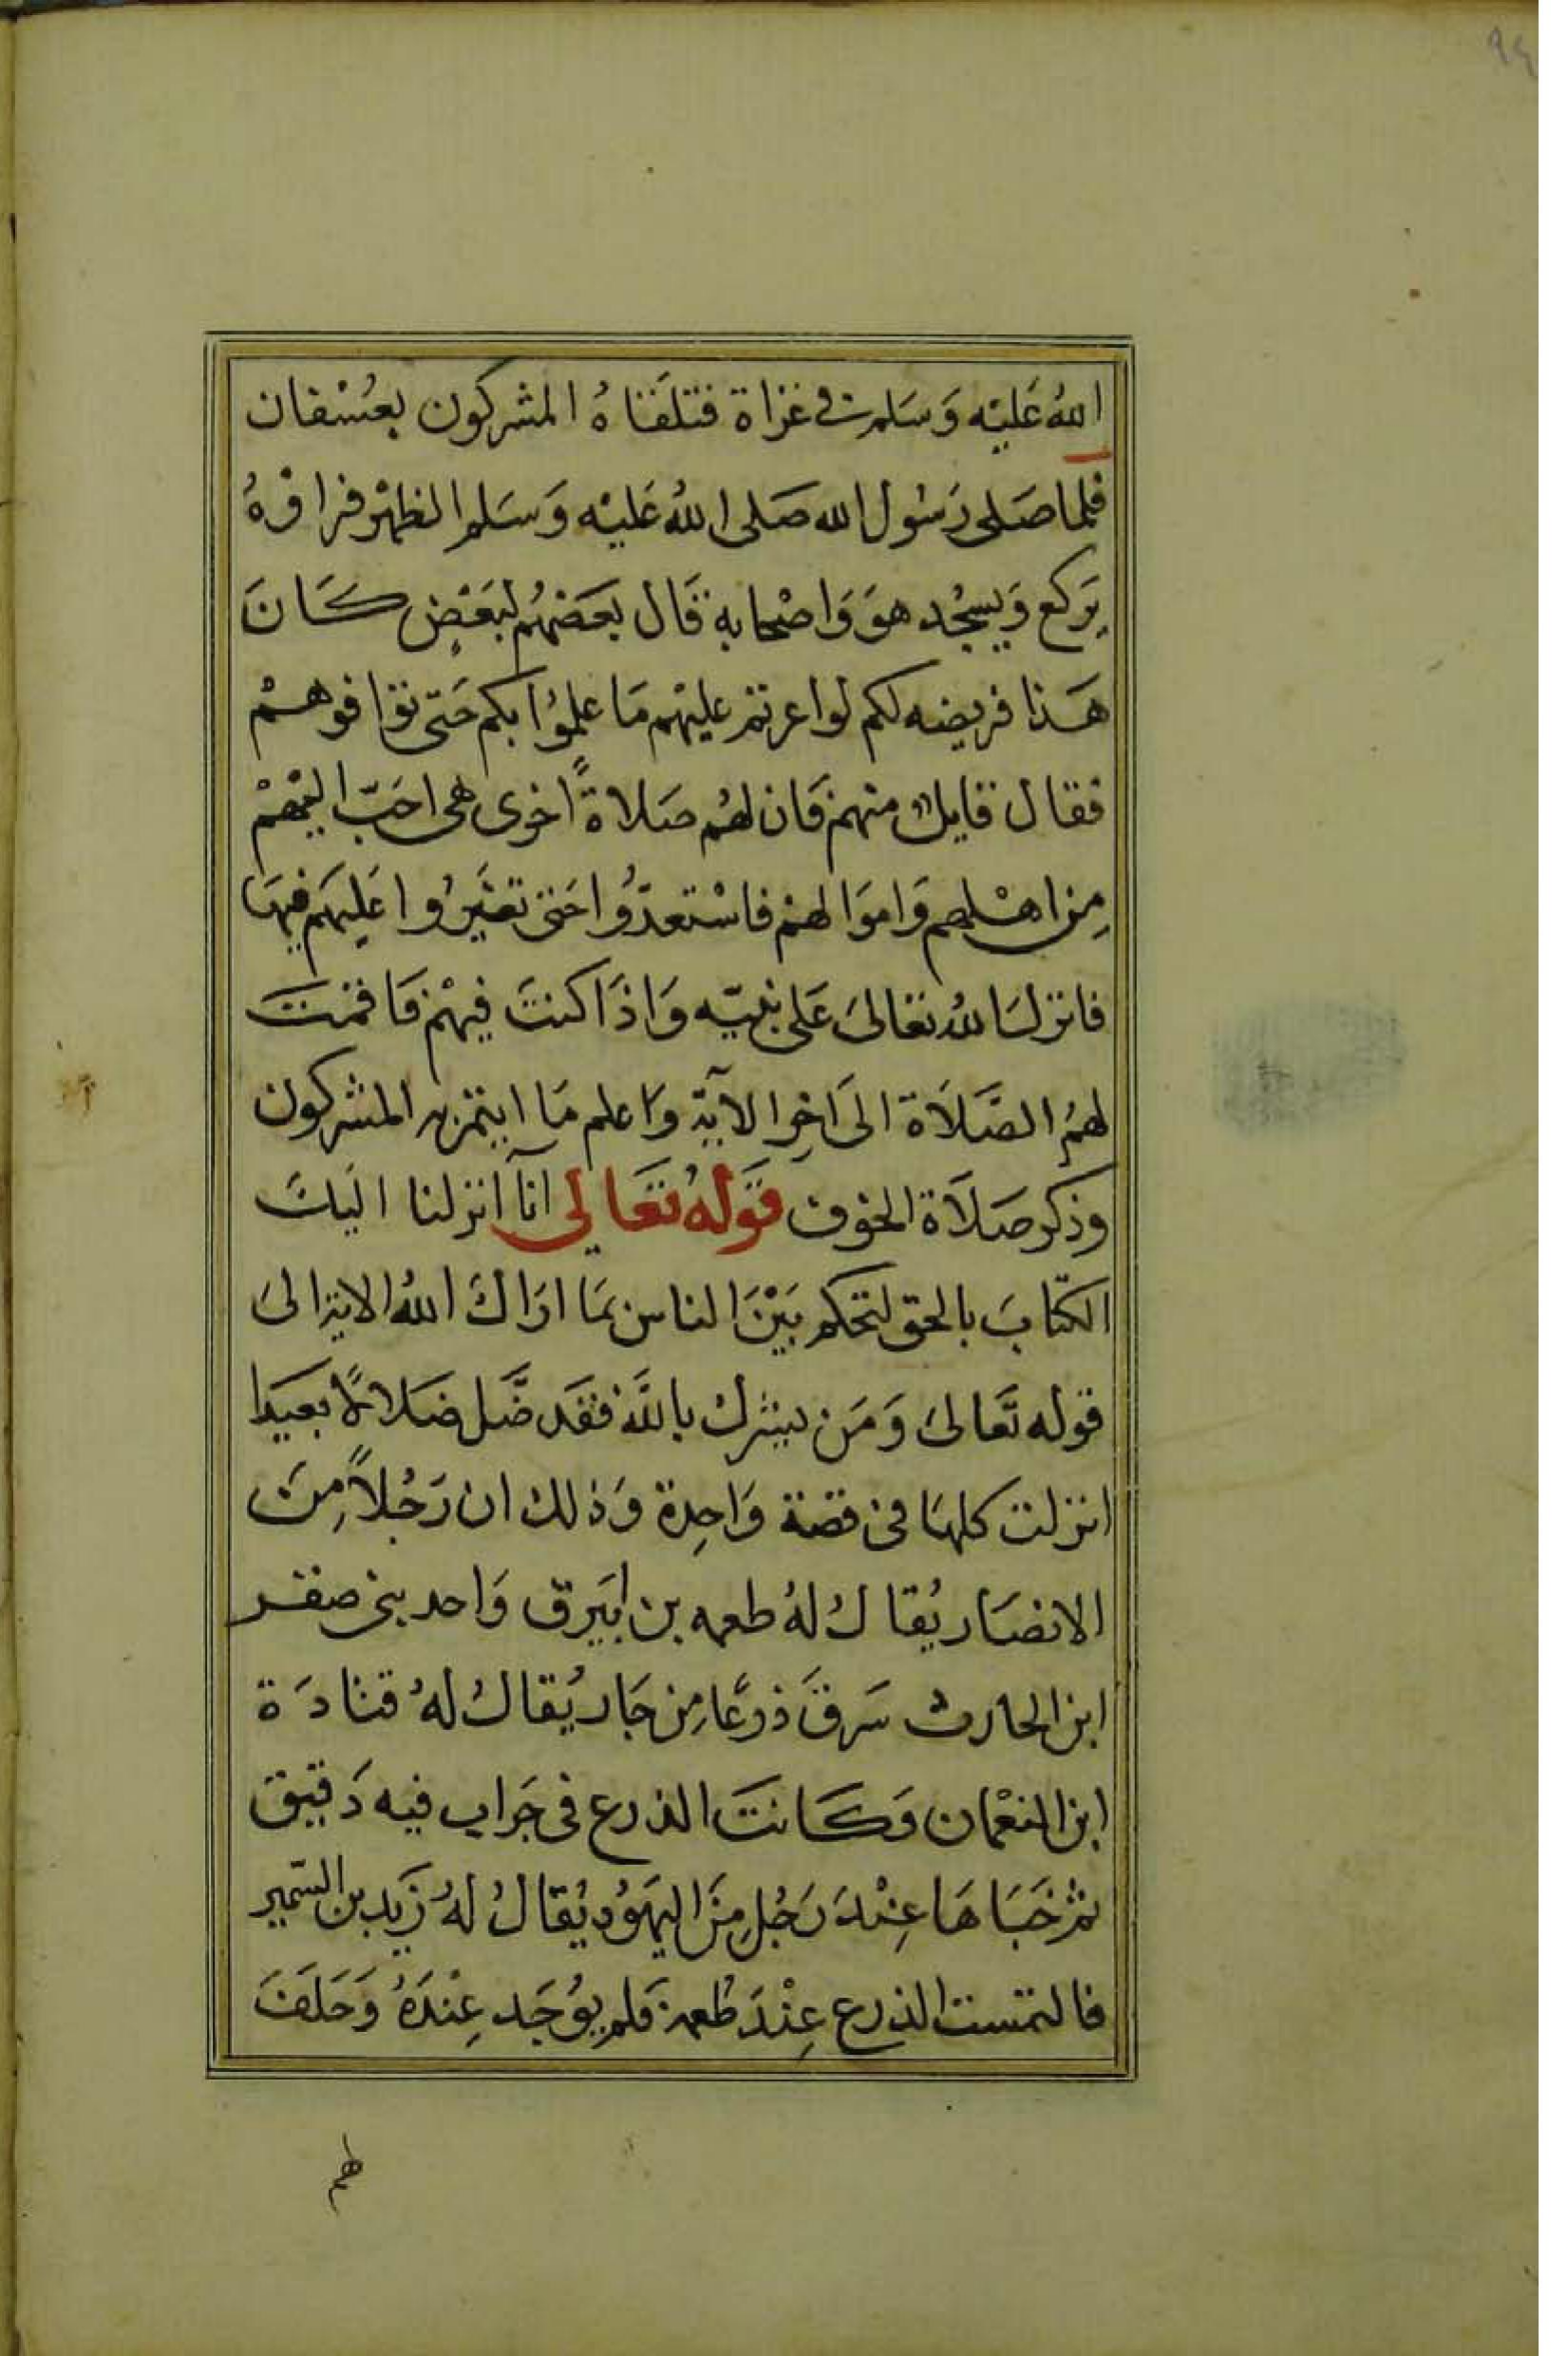 ٩٤
الله عَليْه وَسَلم في غزاة فتلقاهُ المشركون بعُسْفان
فلما صَلى رَسُول الله صَلى اللهُ عَليْه وَسَلم الظهْر فراوْهُ
يَركع وَيسجُد هوَ وَاصْحابه قال بعَضهُم لبَعْضٍ كَانَ
هَذا فريضه لكم لو اغرتم عليهْم مَا علمُوا بكم حَتى تواقوهمْ
فقال قايلٌ منهم فان لهُم صَلاةً اخرى هي احَبّ اليهْم
مِن اهْلهم وَاموَالهم فاسْتعدّوُا حَتى تغيرُوا عَليهَم فيهَا
فانزل الله تعَالىَ عَلى نبيّه وَاذَا كنتَ فيهْم فَاقمْتَ
لهمُ الصَّلاَة الىَ اخِر الآية وَاعلم مَا ايتمر به المشركون
وذكر صَلاَة الخوف قوَلهُ تعَالى انآ انزلنا اليَكَ
الكتّابَ بالحق لتحكم بَيْنَ الناس بمَا ارَاك اللهُ الاية الىَ
قوله تَعالىَ وَمَن يشرك باللَّه فقَد ضَّل ضَلالاً بعَيدا
انزلت كلهَا في قصة وَاحِدة وَذلك ان رَجُلاً مِنَ
الانصَار يُقالُ لهُ طعمه بن ابَيرق وَاحد بني صفر
ابن الحارث سَرقَ ذرعًا مِن جَار يُقالُ لهُ قتادَة
ابن النعْمان وَكَانتَ الذرع في جَراب فيه دَقيق
ثم خَبَاهَا عِنْدَ رَجُلٍ مِنَ اليهَوُد يُقالُ لهُ زَيد بن السّمير
فالتمست الذرع عِنْدَ طُعمة فلم يوُجَد عِنْدَهُ وَحَلفَ
لهم